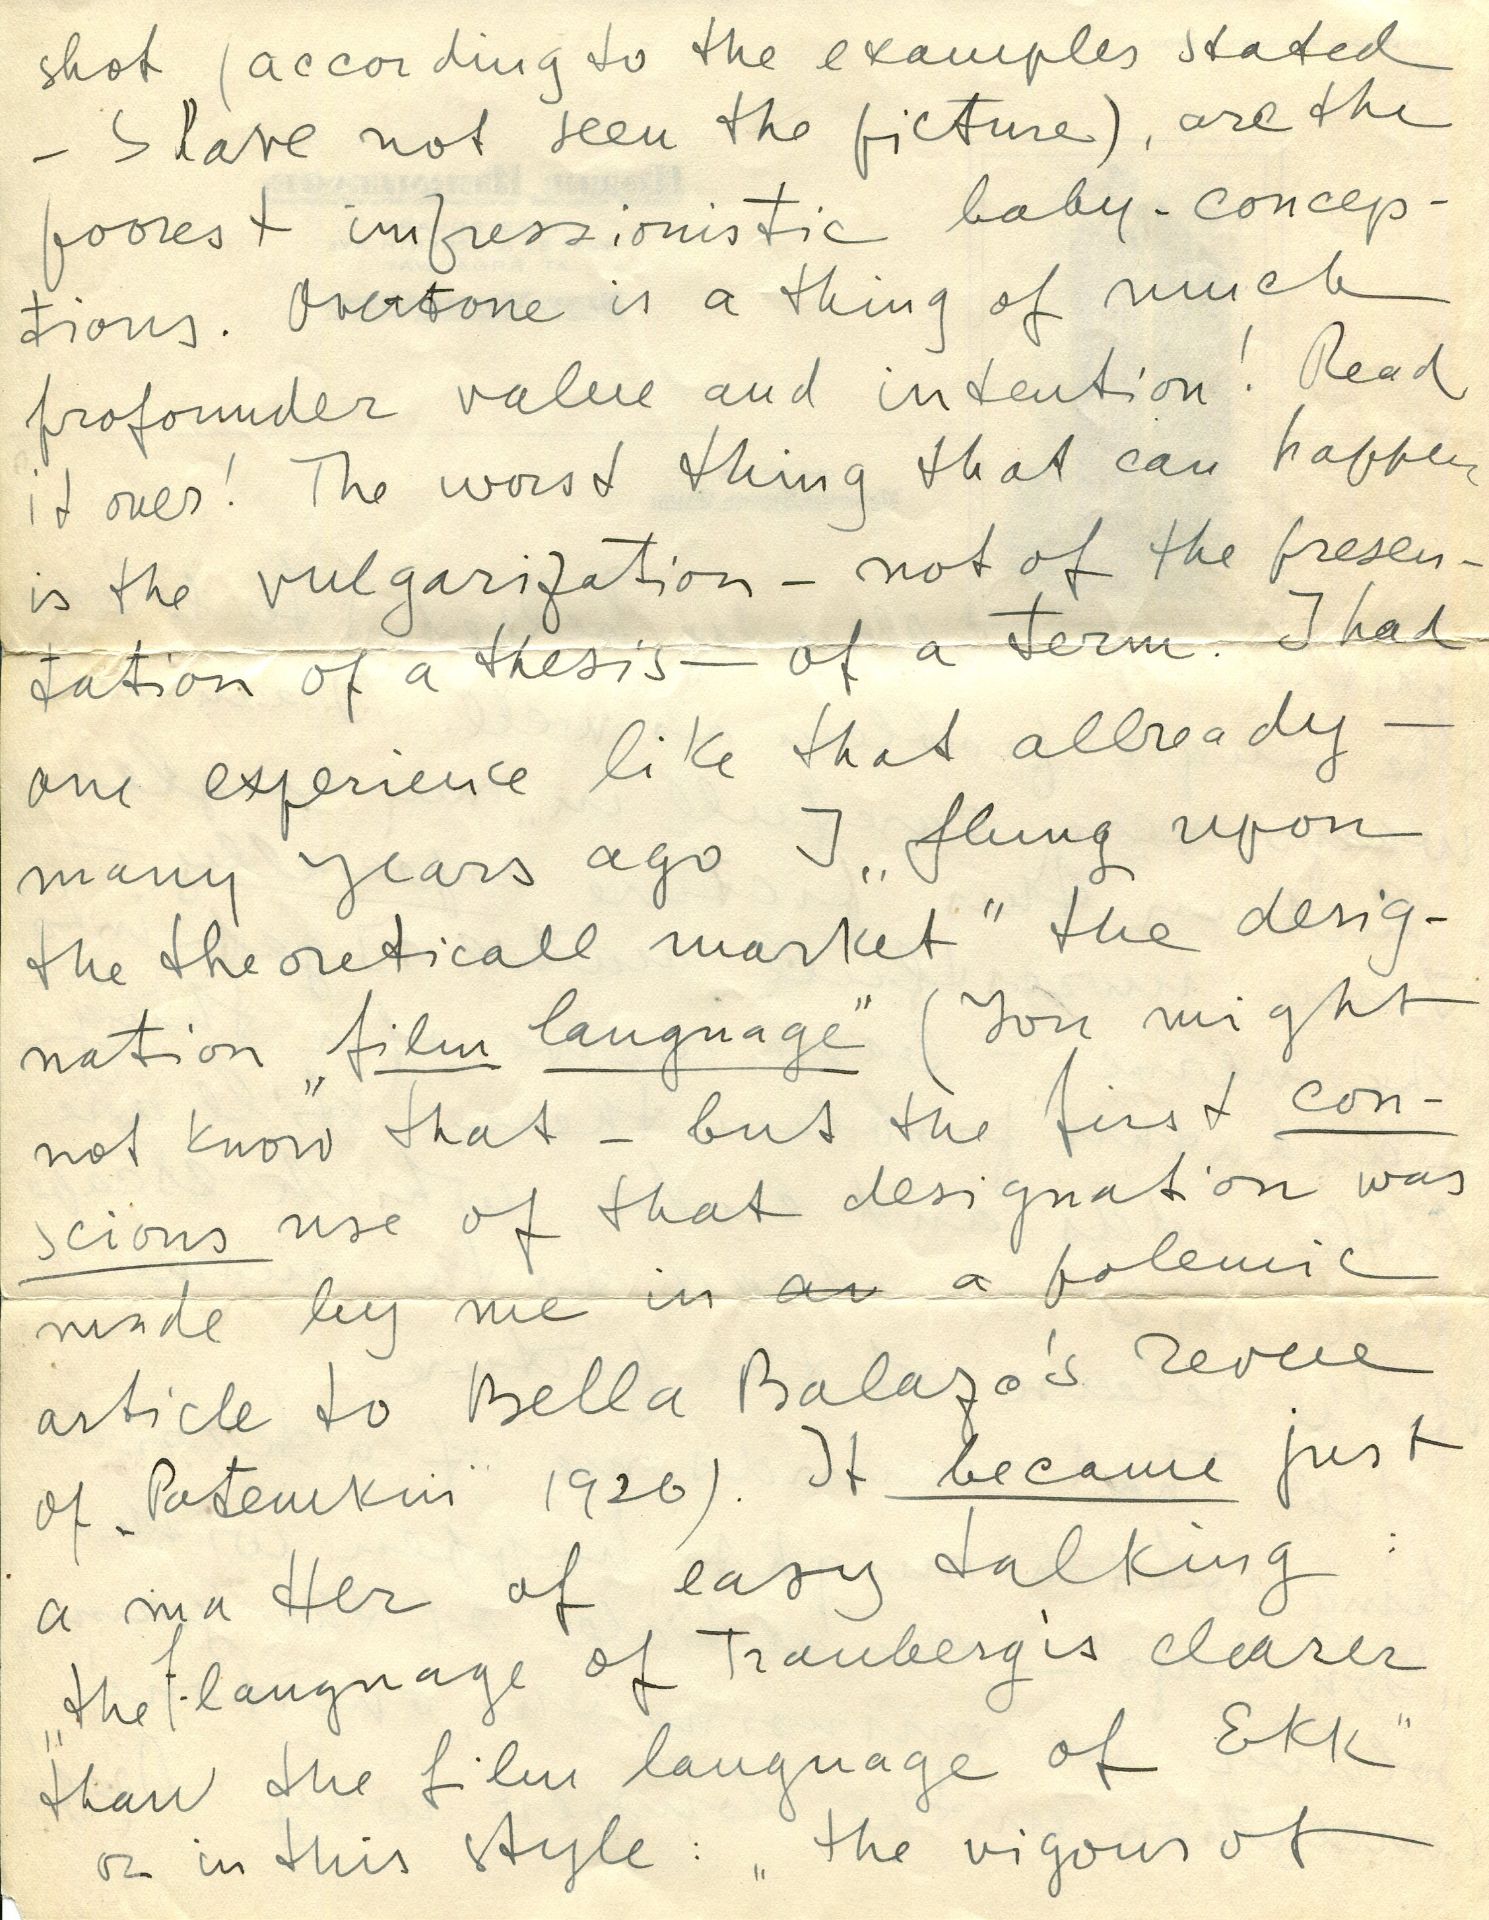 shot (according to the examples stated
- I have not seen the picture), are the
poorest impressionistic baby-concep-
tions. Overtone is a thing of much
profounder value and intention! Read
it over! The worst thing that can happen
is the vulgarization - not of the presen-
tation of a thesis - of a term. I had
one experience like that allready -
many years ago I „flung upon
the theoreticall market" the desig-
nation „film language" (You might
not know that - but the first con-
scious use of that designation was
made by me in an a polemic
article to Bella Balazs's revue
of „Potemkin" 1926). It became just
a matter of easy talking :
„the f. language of Trauberg is clearer
than the film language of Ekk"
or in this style : „the vigour of